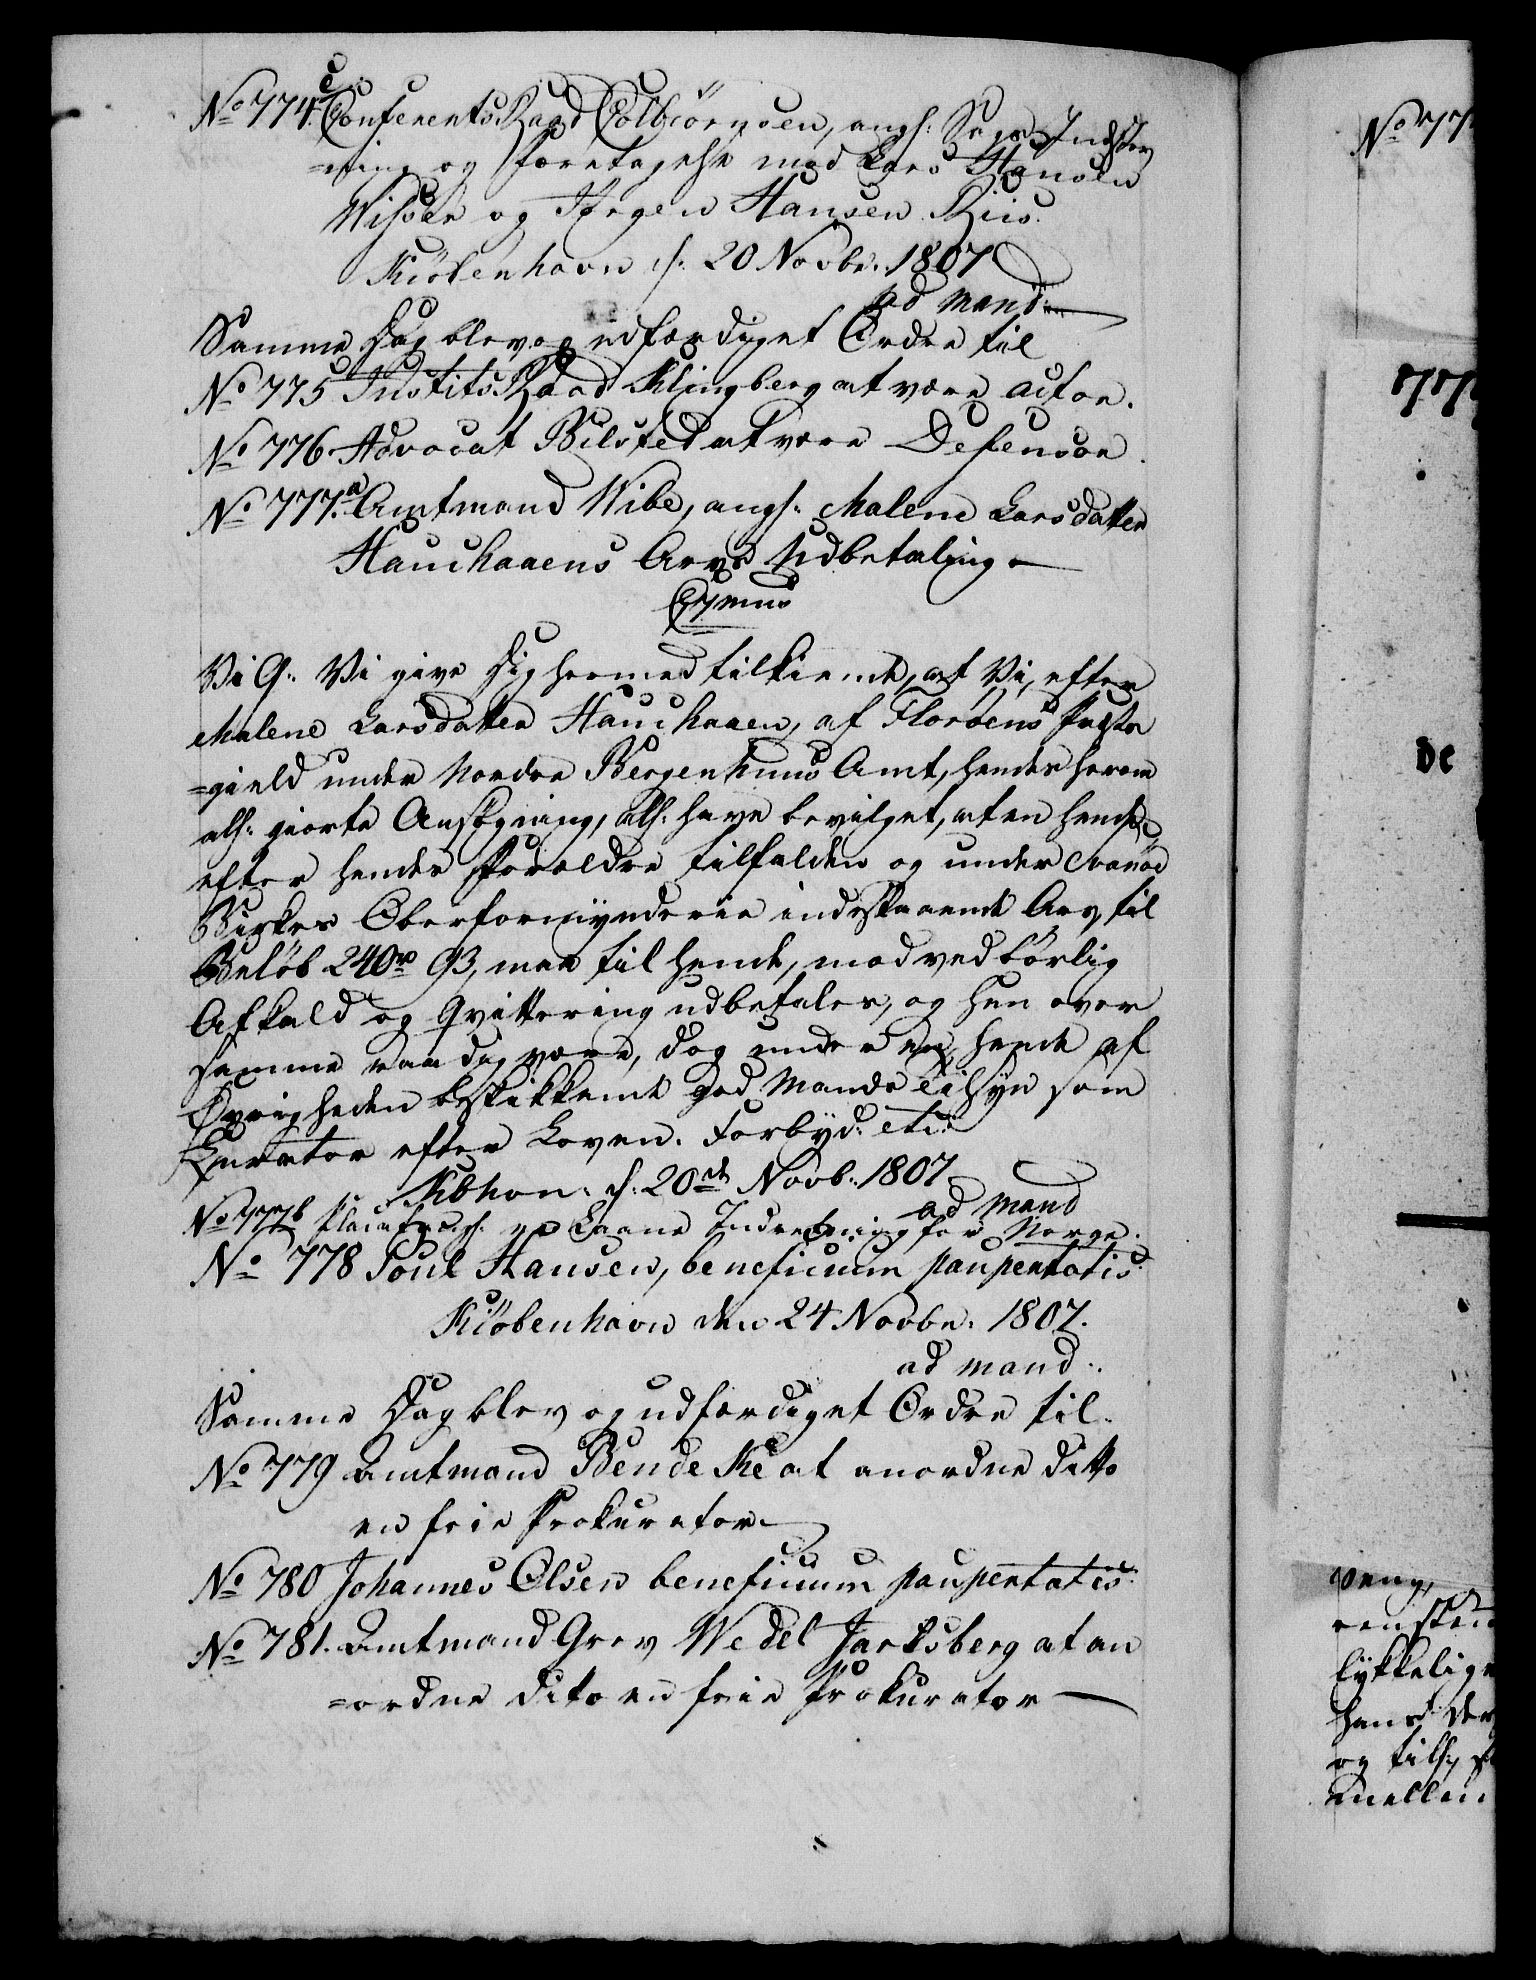 No 774.c ConferentsRaad Colbiörnsen, angl: Sags Indstev
=ning og Foretagelse mod Lars Hansen
Wiser og Jørgen Hansen Riis.
Kiöbenhavn d: 20 Novbr: 1807
ad mand:
Samme Dag blev og udfærdiget Ordre til
No 775 JustitsRaad Klingberg at være actor.
No 776 Advocat Bilsted at være Defensor.
No 777.a Amtmand Wibe, angl: Malene Larsdatter
Hauchaaens Arvs Udbetaling.
C 7mus
Vi G: Vi give Dig hermed tilkiende, at Vi, efter
Malene Larsdatter Hauchaaen, af Florøens Præste
=gield under Nordre Bergenhuus Amt, hendes herom
all: giorte Ansøgning, all: have bevilget, at en hende
efter hendes Forældre tilfalden og under Svanöe
Birkes Oberformynderie indestaaende Arv, til
Beløb 240 rd 93, maa til hende, mod vedbörlig
Afkald og Qvittering udbetales, og hun over
samme raadig være, dog under en, hende af
Øvrigheden beskikkende god Mands Tilsyn som
Curator efter Loven. Forbyd: etc:
Kbhvn: d: 20de Novb: 1807
ad mand
No 777b Placat angl: en Laane Indretning for Norge.
No 778 Poul Hansen, beneficium paupertatis.
Kiöbenhavn den 24 Novbr: 1807.
ad mand:
Samme Dag blev og udfærdiget Ordre til
No 779 Amtmand Bendeke at anordne ditto
en frie Prokurator
No 780 Johannes Olsen beneficium paupertatis:
No 781. Amtmand Grev Wedel Jarlsberg at an
=ordne dito en frie Prokurator
No 77
77
de
peng,
lykkelige
hans
og till:
mellem